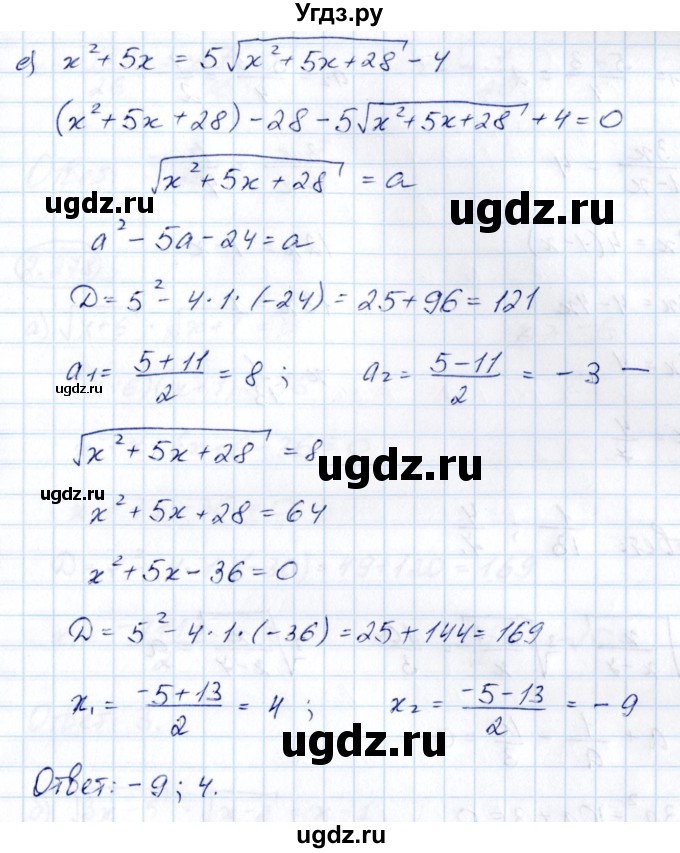 Угдз.ру
е) x² + 5x = 5√(x² + 5x + 28) - 4
(x² + 5x + 28) - 28 - 5√(x² + 5x + 28) + 4 = 0
√(x² + 5x + 28) = a
ugdz.ru ugdz.ru
a² - 5a - 24 = a
D = 5² - 4·1·(-24) = 25 + 96 = 121
a₁ = (5 + 11)/2 = 8 ; a₂ = (5 - 11)/2 = -3 —
ugdz.ru
√(x² + 5x + 28) = 8
ugdz.ru
ugdz.ru
x² + 5x + 28 = 64
x² + 5x - 36 = 0
D = 5² - 4·1·(-36) = 25 + 144 = 169
x₁ = (-5 + 13)/2 = 4 ; x₂ = (-5 - 13)/2 = -9
ugdz.ru
Ответ: -9 ; 4.
ugdz.ru